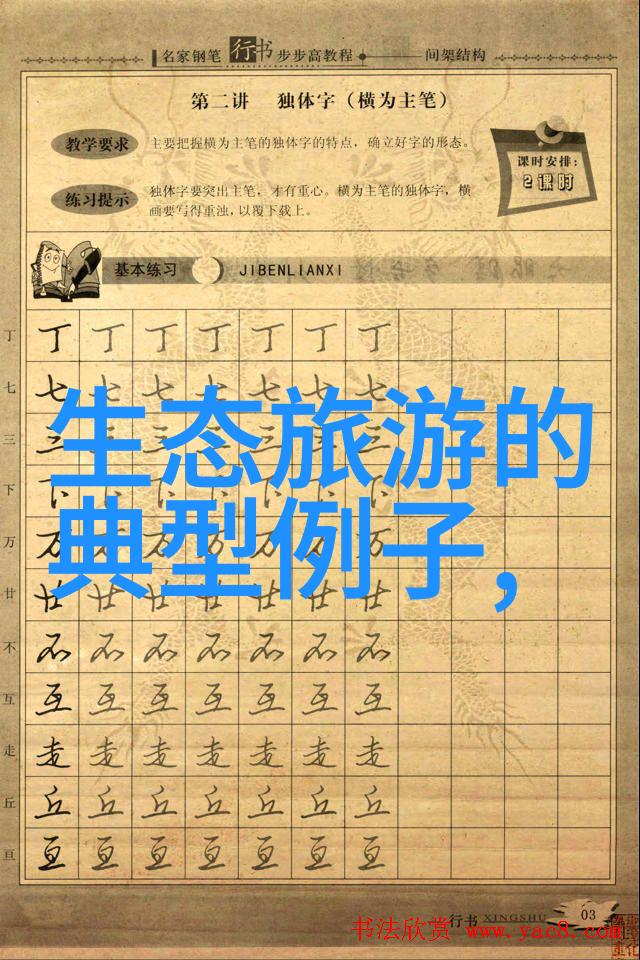 名家钢笔行书步步高教程 间架结构
第二讲 独体字（横为主笔）
教学要求 主要把握横为主笔的独体字的特点，确立好字的形态。
课时安排：
2课时
练习提示 独体字要突出主笔，才有重心。横为主笔的独体字，横
画要写得重浊，以覆下载上。
基本练习 JIBENLIANXI
丁 丁 丁 丁 丁 丁 丁 丁
七 七 七 七 七 七 七 七
生态旅游的
三 三 三 三 三 三 三 三
下 下 下 下 下 下 下 下
典型例子，
万 万 万 万 万 万 万 万
廿 廿 廿 廿 廿 廿 廿 廿
不 不 不 不 不 不 不 不
互 互 互 互 互 互 互 互
走 走 走 走 走 走 走 走
丘 丘 丘 丘 丘 丘 丘 丘
亘 亘 亘 亘 亘 亘 亘 亘
行书 XINGSHU 03
书法欣赏 www.yac8.com